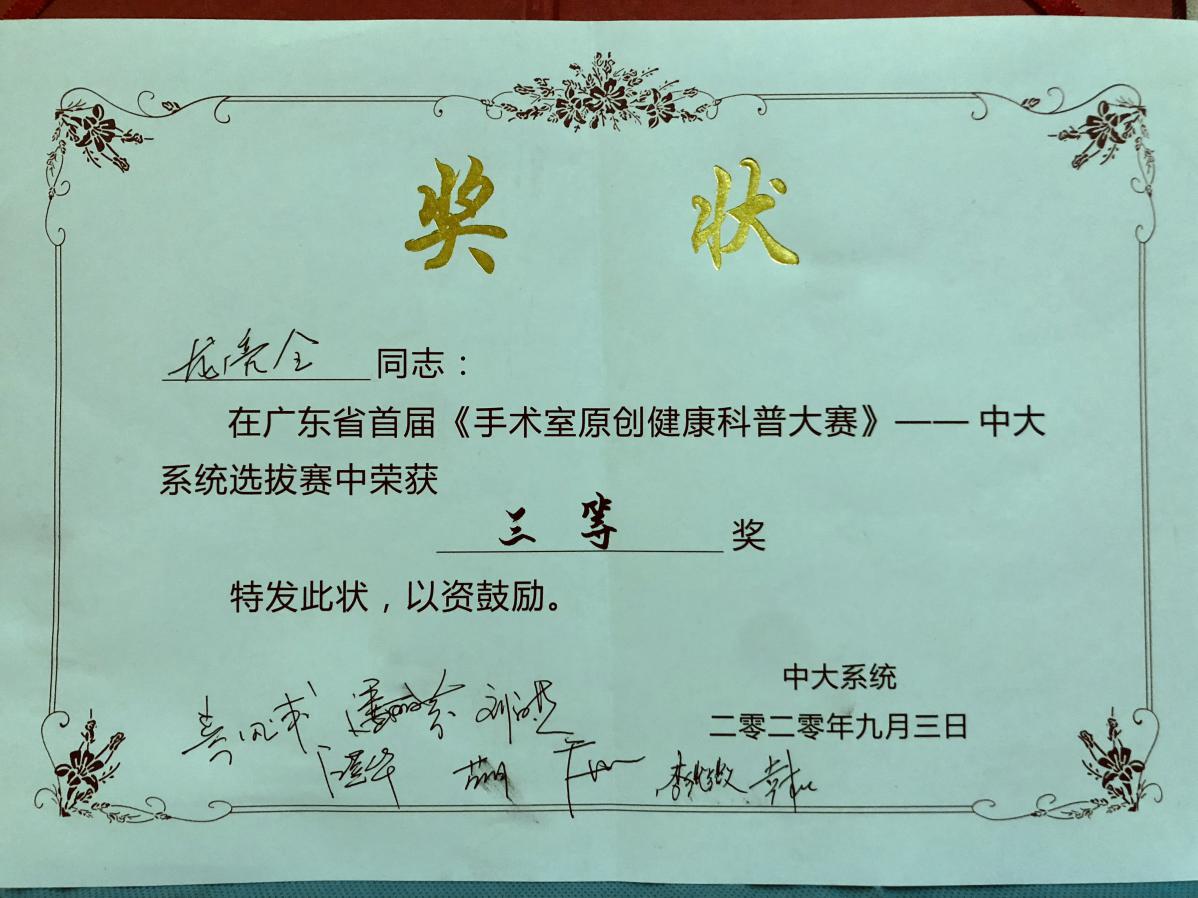 奖状
龙亮全同志：
在广东省首届《手术室原创健康科普大赛》—— 中大
系统选拔赛中荣获
三等奖
特发此状，以资鼓励。
中大系统
二零二零年九月三日